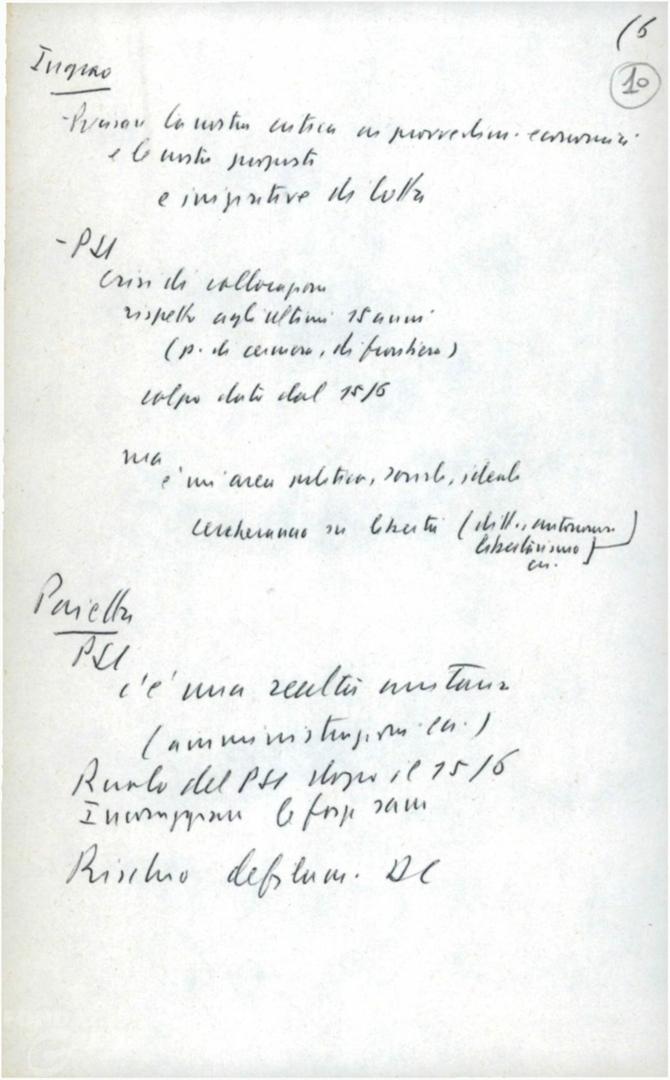 (6
10
Ingrao
- Precisare la nostra critica ai provvedim. economici
e le nostre proposte
e iniziative di lotta
- PSI
crisi di collocazione
rispetto agli ultimi 15 anni
(p. di cerniera, di frontiera)
colpo dato dal 15/6
ma
è un'area politica, sociale, ideale
cercheranno su libertà (ditt., autonomia
libertarismo
ecc.
Pajetta
PSI
c'è una realtà
(amministrazioni ecc.)
Ruolo del PSI dopo il 15/6
Incoraggiare le forze sane
Rischio defilam. DC